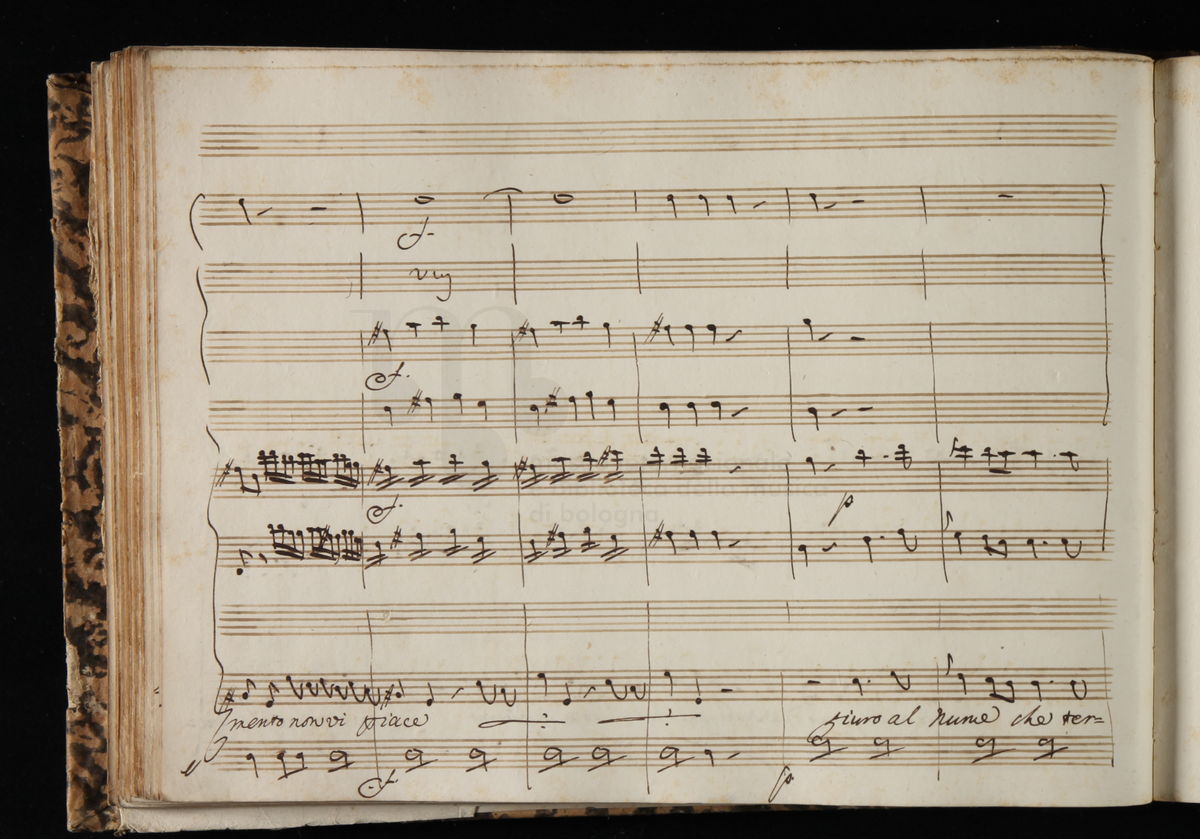 f.
f.
f.
p
mento non vi piace giuro al Nume che ter=
f
p
della musica
di bologna